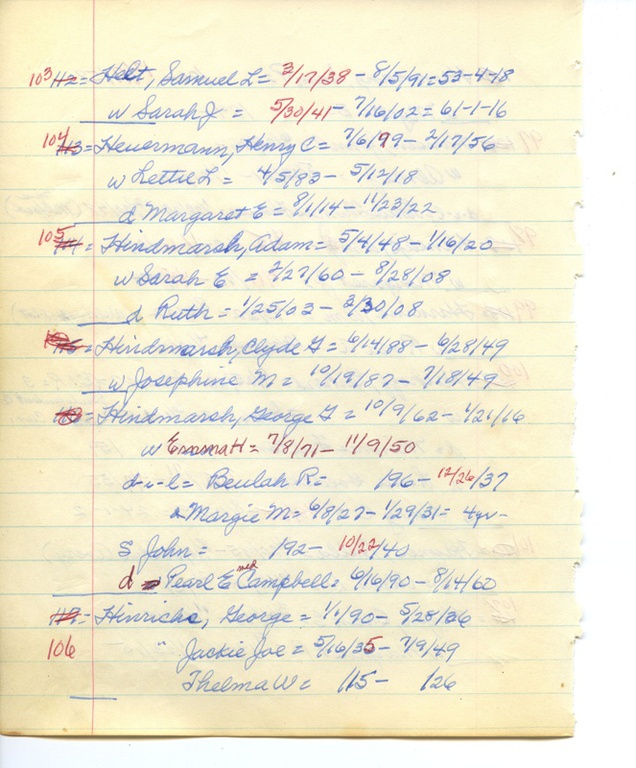 103 H2 = Helt, Samuel L = 3/17/38 - 8/5/91 = 53-4-18
w Sarah J = 5/30/41 - 7/16/02 = 61-1-16
104 H3 = Heuermann, Henry C = 7/6/99 - 2/17/56
w Lettie L = 4/5/83 - 5/12/18
d Margaret E = 8/1/14 - 11/23/22
105 = Hindmarsh, Adam = 5/4/48 - 1/16/20
w Sarah E = 2/27/60 - 8/28/08
d Ruth = 1/25/03 - 3/30/08
= Hindmarsh, Clyde G = 6/14/88 - 6/28/49
w Josephine M = 10/19/87 - 7/18/49
= Hindmarsh, George G = 10/9/62 - 1/21/16
w Emma H = 7/8/71 - 11/9/50
d-i-l = Beulah R = 196 - 12/26/37
Margie M = 6/8/27 - 1/29/31 = 4yr -
S John = 192 - 10/22/40
d Pearl E Campbell = 6/16/90 - 8/14/60
= Hinrichs, George = 1/1/90 - 5/28/36
106 " Jackie Joe = 5/16/35 - 7/9/49
Thelma W = 115 - 126